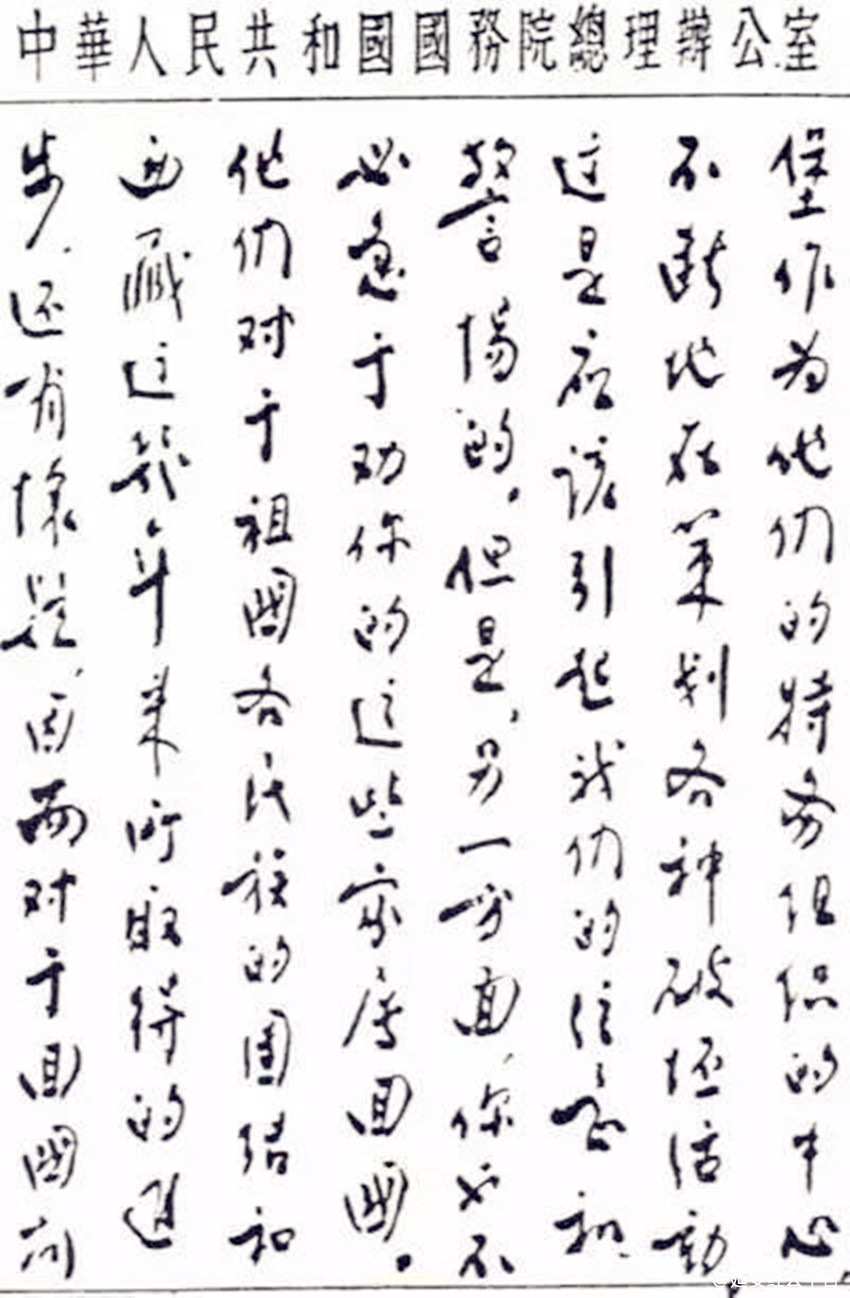 中華人民共和國國務院總理辦公室
堡作为他们的特务组织的中心，
不断地在策划各种破坏活动
这是应该引起我们的注意和
警惕的。但是，另一方面，你也不
必急于劝你的这些亲属回国。
他们对于祖国各民族的团结和
西藏这几年来所取得的进
步，还有怀疑，因而对于回国问